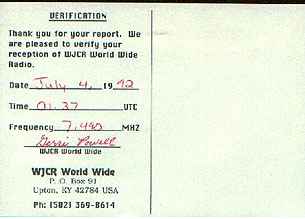 VERIFICATION
Thank you for your report. We
are pleased to verify your
reception of WJCR World Wide
Radio.
Date July 4, 1992
Time 01.37 UTC
Frequency 7.490 MHZ
Gerri Powell
WJCR World Wide
WJCR World Wide
P. O. Box 91
Upton, KY 42784 USA
Ph: (502) 369-8614